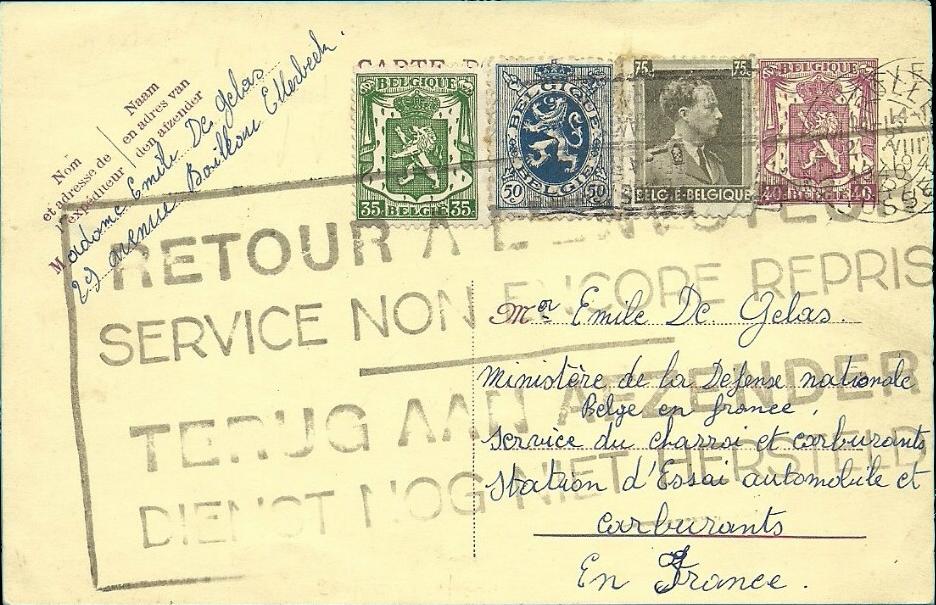 CARTE
Nom
et adresse de
l'expéditeur
Naam
en adres van
den afzender
Madame Emile De Gelas
29 avenue Bouillon Etterbeek.
BELGIQUE
35 BELGIE 35
BELGIQUE
BELGIE
50 50
75c 75c
BELGIE-BELGIQUE
BELGIQUE
40 BELGIE 40
14
VIII
1940
RETOUR A L'ENVOYEUR
SERVICE NON ENCORE REPRIS
TERUG AAN AFZENDER
DIENST NOG NIET HERSTELD
Mr Emile De Gelas.
Ministère de la Défense nationale
Belge en france,
Service du charroi et carburants
Station d'Essai automobile et
carburants
En France.